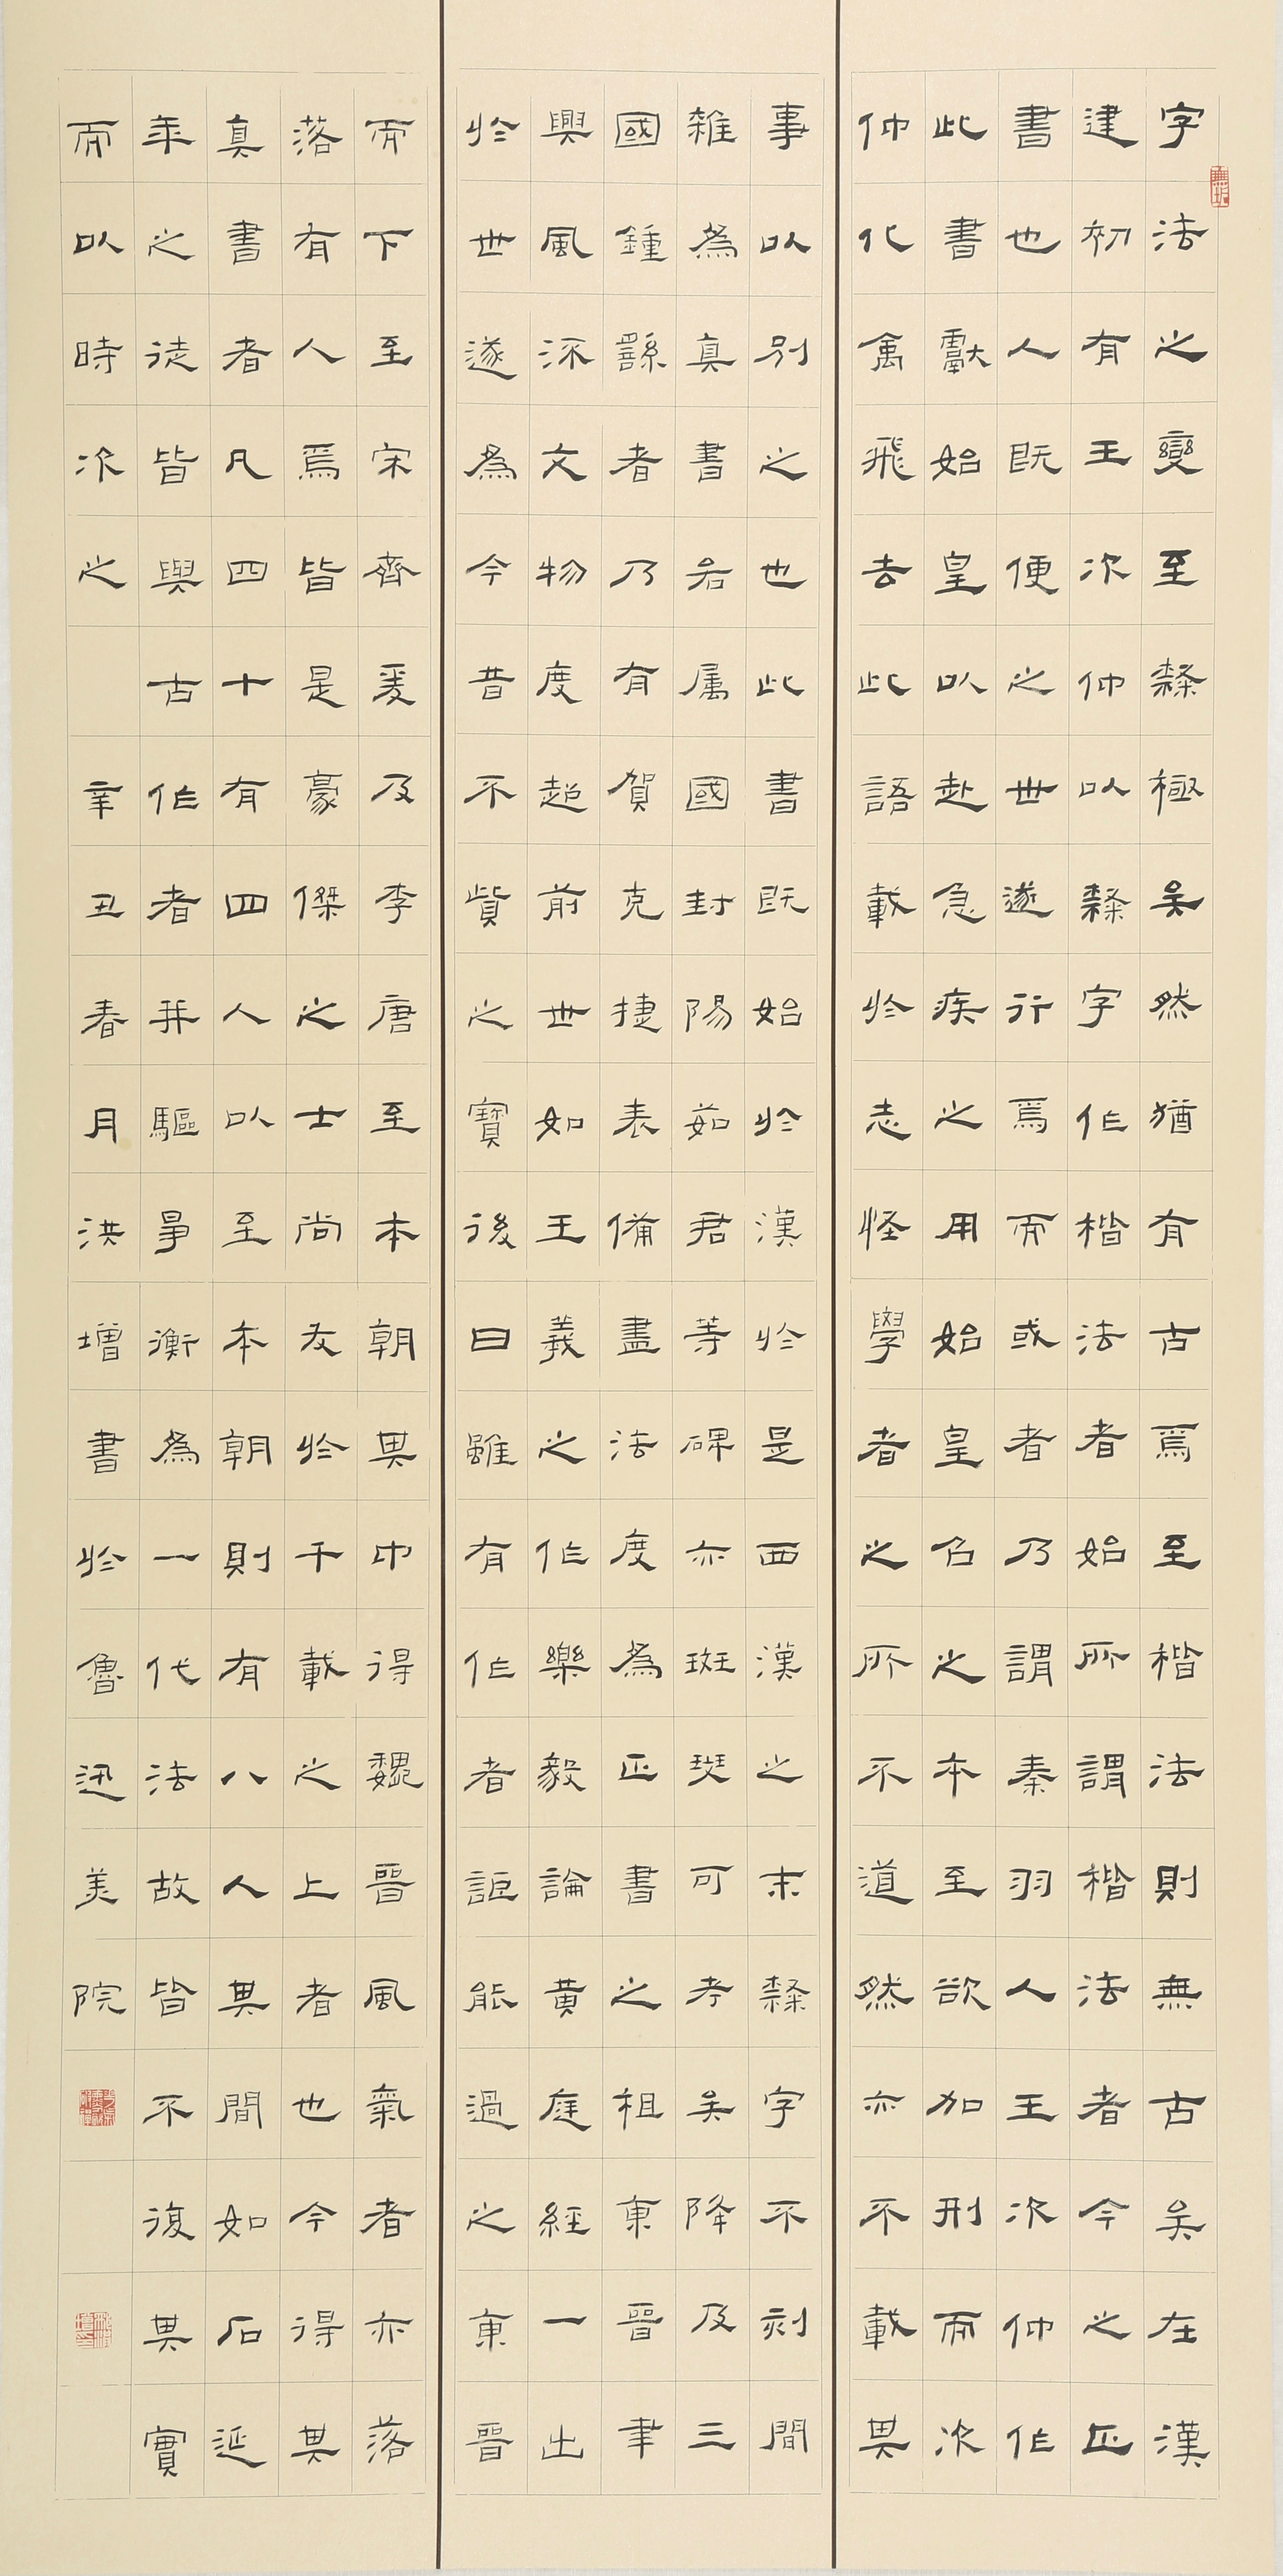 字法之變至隸極矣然猶有古焉至楷法則無古矣在漢
建初有王次仲以隸字作楷法者始所謂楷法者今之正
書也人既便之世遂行焉而或者乃謂秦羽人王次仲作
此書獻始皇以赴急疾之用始皇召之本至欲加刑而次
仲化禽飛去此語載於志怪學者之所不道然亦不載其
事以別之也此書既始於漢於是西漢之末隸字不刻間
雜為真書若属國封陽茹君等碑亦斑斑可考矣降及三
國鍾繇者乃有賀克捷表備盡法度為正書之祖東晉聿
興風流文物度越前世如王羲之作樂毅論黃庭經一出
於世遂為今昔不貲之寶後曰雖有作者詎能過之東晉
而下至宋齊爰及李唐至本朝其中得魏晉風氣者亦落
落有人焉皆是豪傑之士尚友於千載之上者也今得其
真書者凡四十有四人以至本朝則有八人其間如石延
年之徒皆與古作者并驅爭衡為一代法故皆不復其實
而以時次之 辛丑春月洪增書於魯迅美院